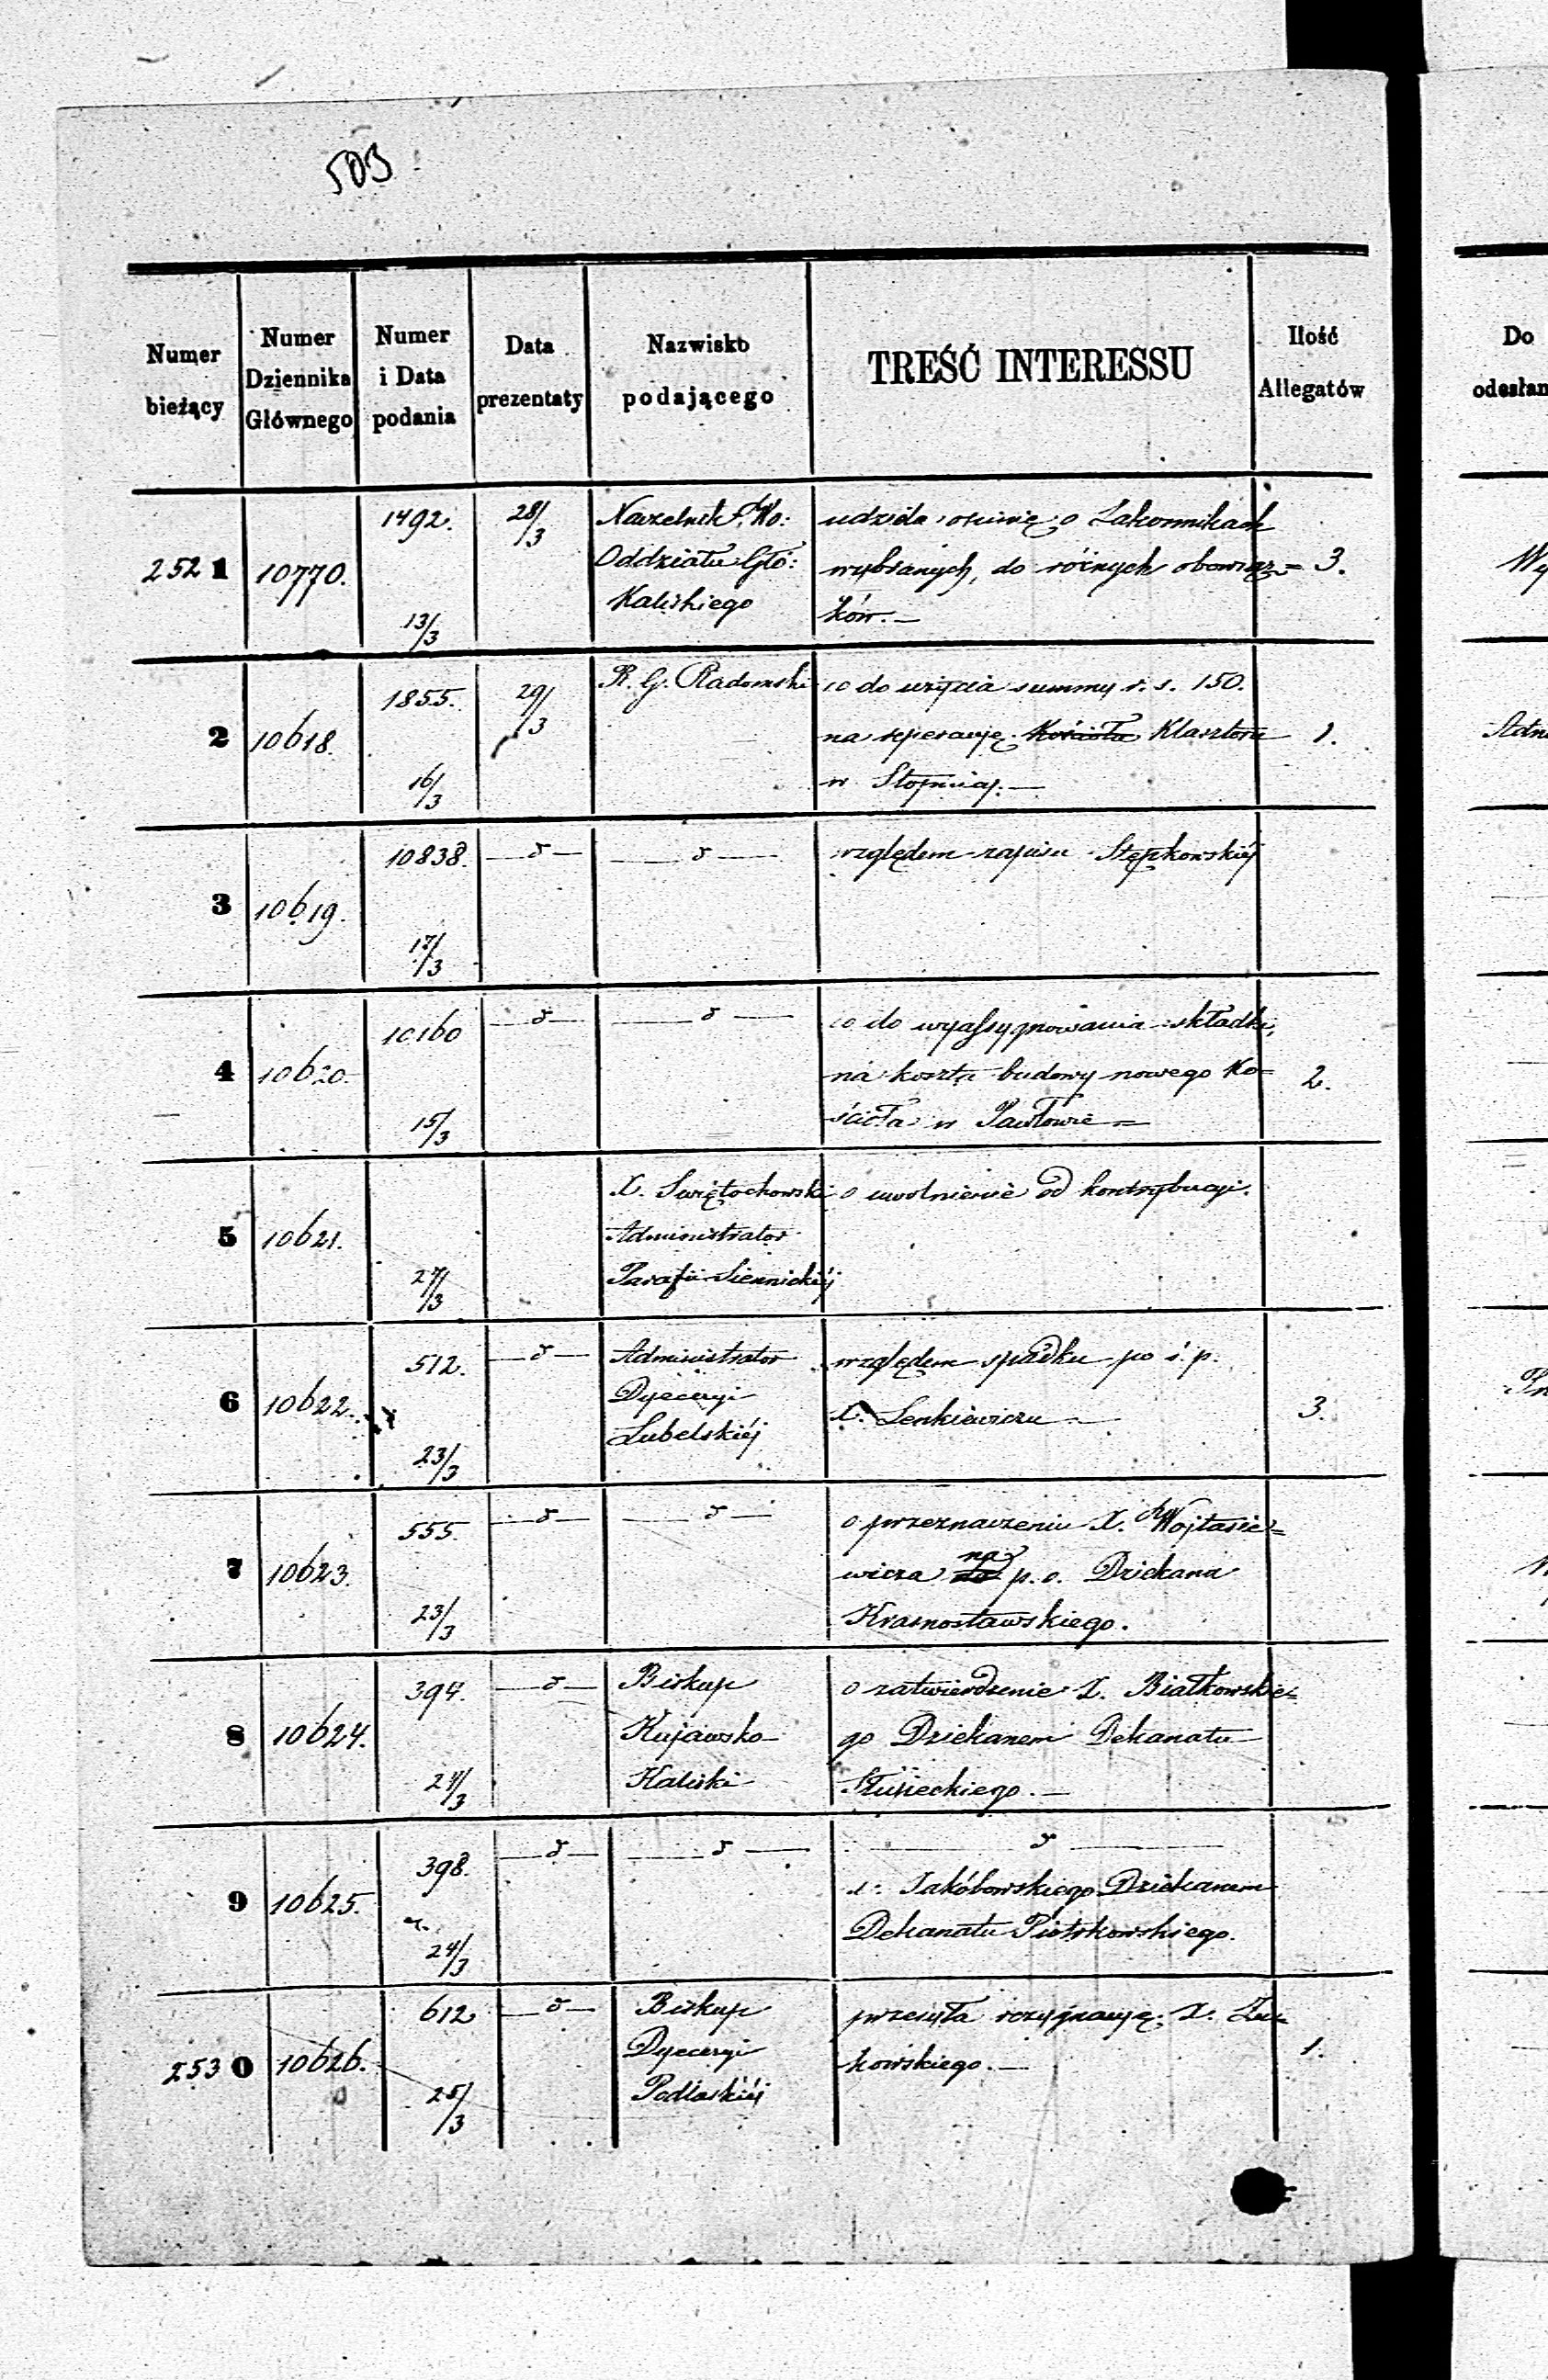 503
Numer bieżący
Numer Dziennika Głównego
Numer i Data podania
Data prezentaty
Nazwisko podającego
TREŚĆ INTERESSU
Ilość Allegatów
Do
odesłan
2521 10770. 1492. 13/3 28/3
Naczelnik Wo:
Oddziału Głó:
Kaliskiego
udziela opinię o Zakonnikach
wybranych, do różnych obowiąz=
ków.—
3.
Wy
2 10618. 1855. 16/3 29/3
R. G. Radomski
co do użycia summy r. s. 150.
na reperacyę Kościoła Klasztoru
w Stopnicy.—
1.
Adm
3 10619. 10838. 17/3 —d— —d—
względem zapisu Stępkowskiéj
4 10620. 10160 15/3 —d— —d—
co do wyassygnowania składki,
na koszta budowy nowego Ko=
ścioła w Pawłowie=
2.
5 10621. 27/3
X. Swiętochowski
Administrator
Parafii Siennickiéj
o uwolnienie od kontrybucyi.
6 10622. 512. 23/3 —d—
Administrator
Dyecezyi
Lubelskiéj
względem spadku po ś. p.
X. Lenkiewiczu—
3.
7 10623. 555. 23/3 —d— —d—
o przeznaczeniu X. Wojtasie=
wicza na do p. o. Dziekana
Krasnostawskiego.
8 10624. 394. 24/3 —d—
Biskup
Kujawsko
Kaliski
o zatwierdzenie X. Białkowskie=
go Dziekanem Dekanatu
9 10625. 398. 24/3 —d— —d— —d—
X. Jakóbowskiego Dziekanem
Dekanatu Piotrkowskiego.
2530 10626. 612 25/3 —d—
Biskup
Dyecezyi
Podlaskiéj
przesyła rezygnacyę X. Żu=
kowskiego.—
1.